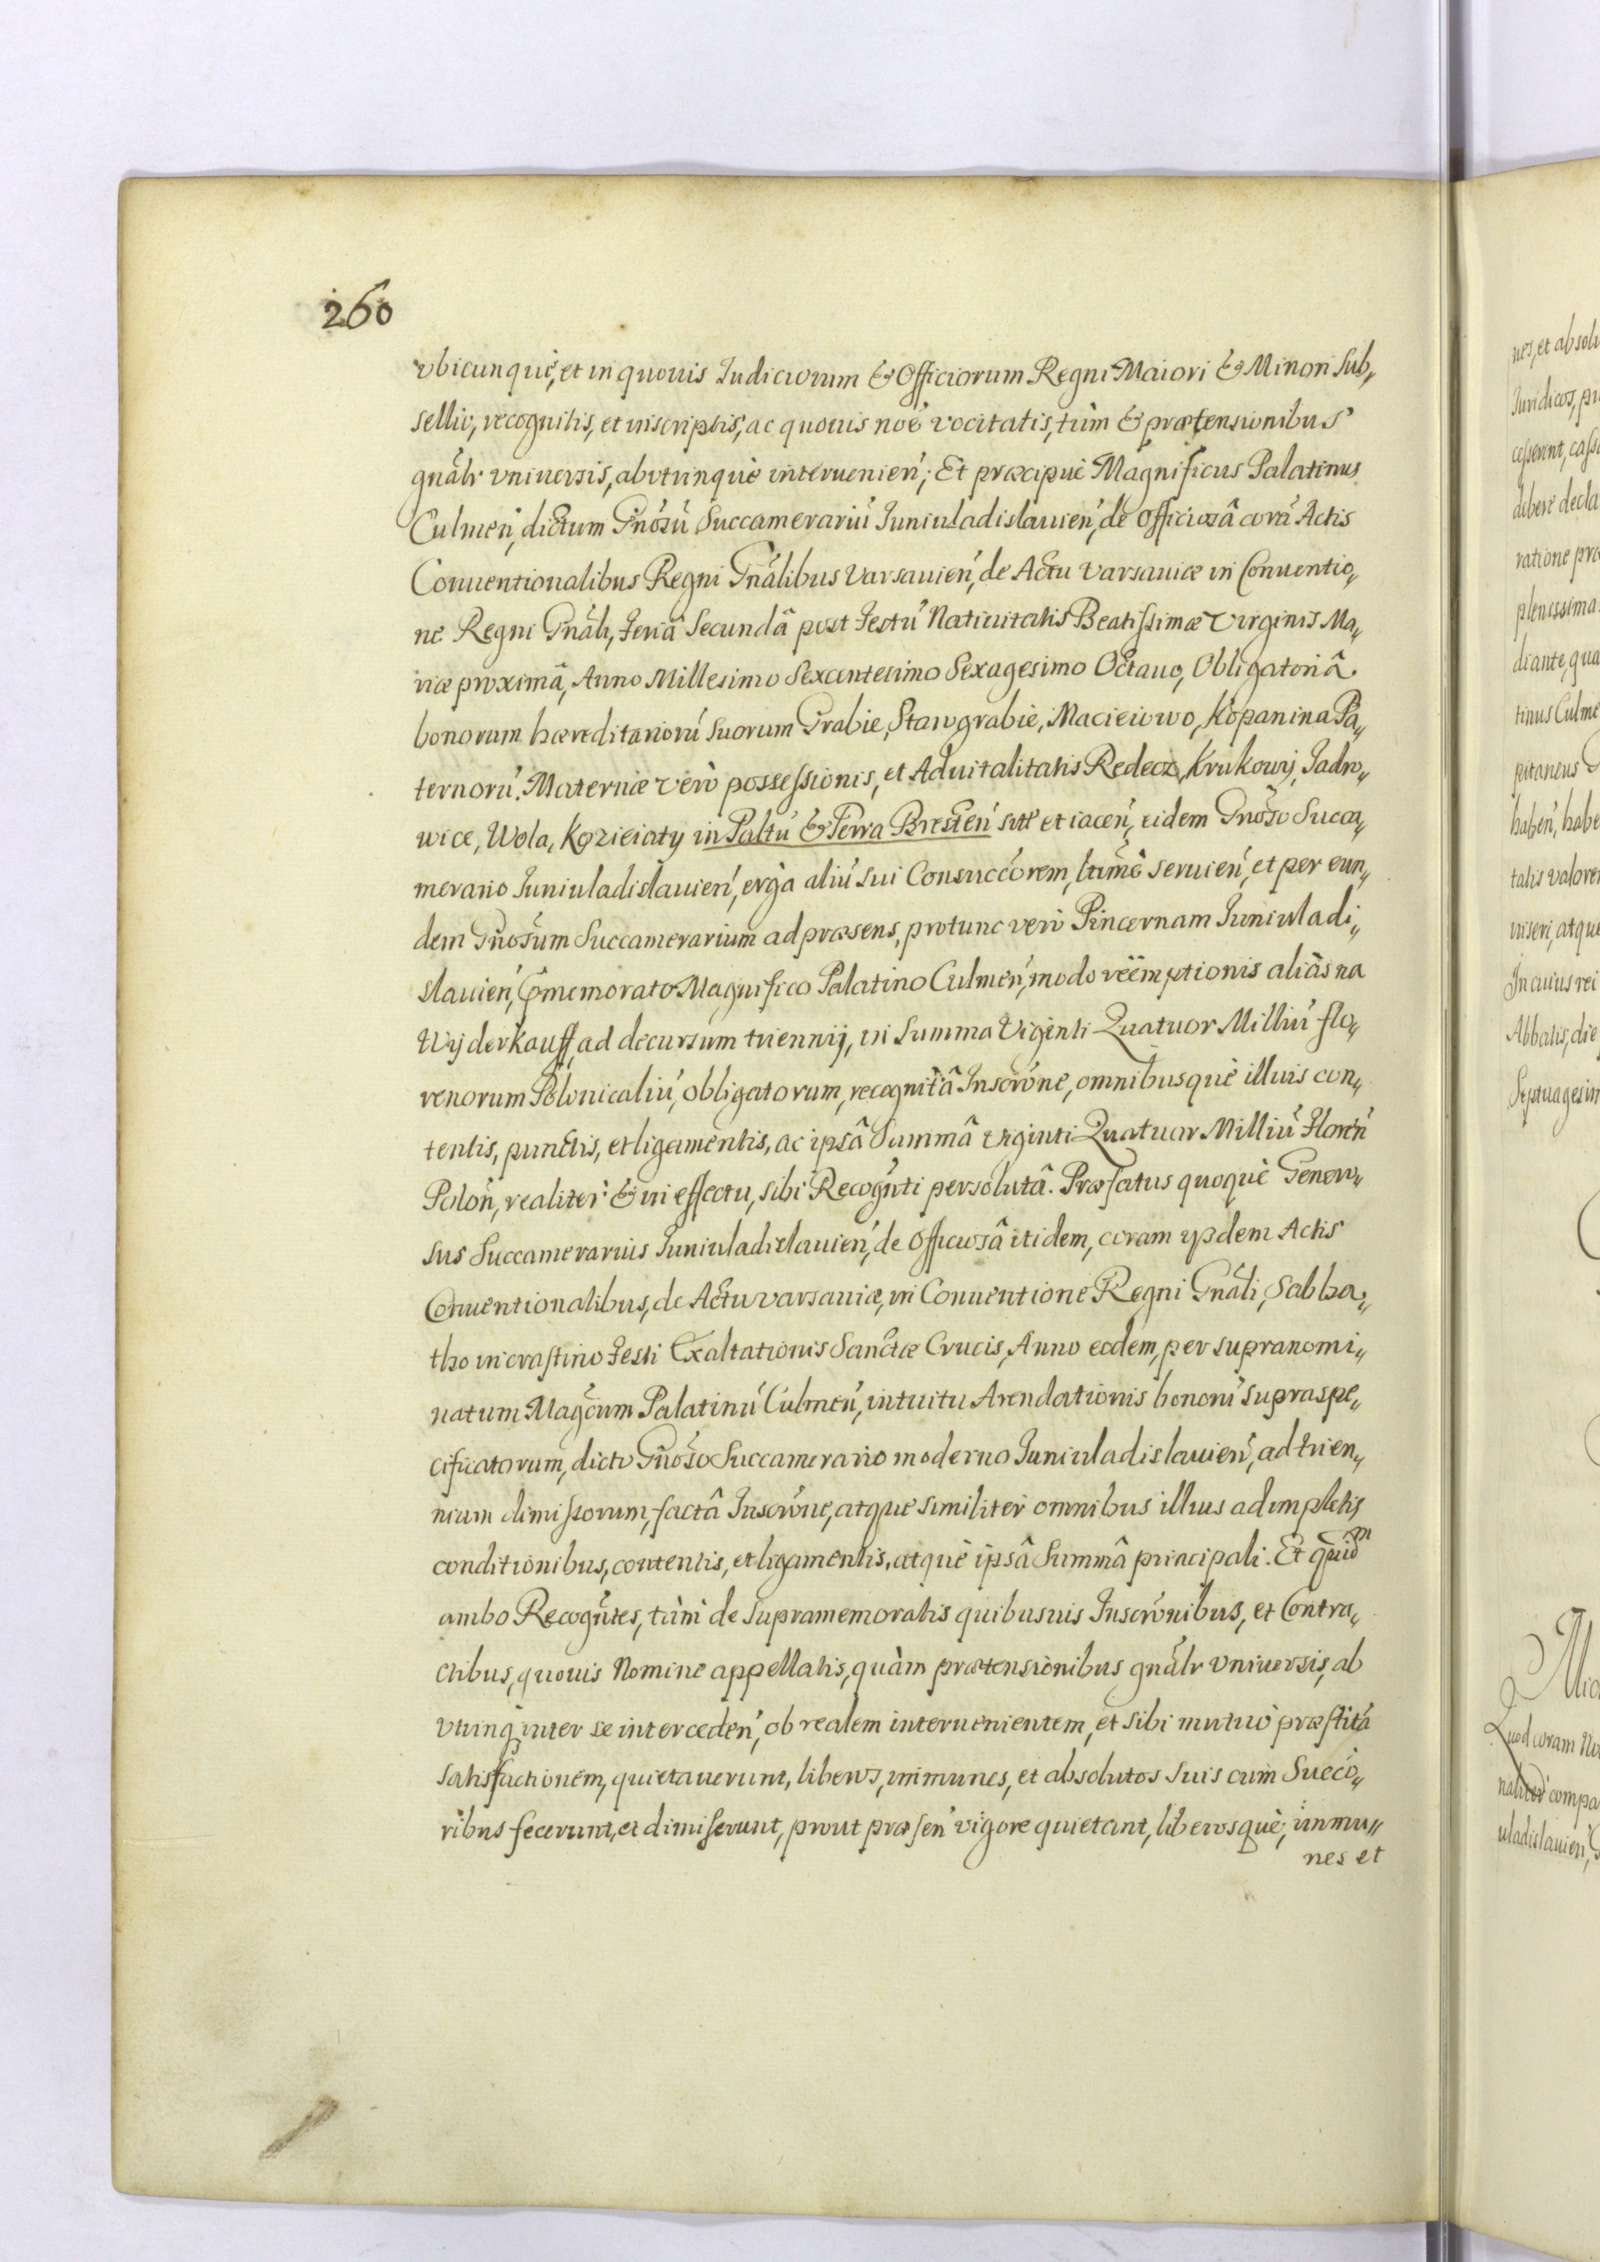 260
vbicunquè, et in quouis Iudiciorum & Officiorum Regni Maiori & Minori Sub„
sellio, recognitis, et inscriptis, ac quouis noĕ vocitatis, tùm & prætensionibus
gnălr vniuersis, abvtrinquè interuenień; Et præcipuè Magnificus Palatinus
Culmeń, dictum Gnŏsŭ Succamerariŭ Iuniuladislauień, de Officiosâ corā Actis
Conuentionalibus Regni Gnălibus Varsauień, de Actu Varsauiæ in Conuentio„
ne Regni Gnăli, Feriâ Secundâ post Festŭ Natiuitatis Beatissimæ Virginis Ma„
riæ proximâ, Anno Millesimo Sexcentesimo Sexagesimo Octauo, Obligatoriâ
bonorum hæreditariorŭ suorum Grabie, Stawgrabie, Macieiowo, Kopanina Pa„
ternorŭ. Maternæ verò possessionis, et Aduitalitatis Redecz, Krukowy, Iadro„
wice, Wola, Kozieiaty in Paltŭ & Terra Bresteń site et iaceń, eidem Gnŏso Succa„
merario Iuniuladislauień, ergà aliŭ sui Consuccŏrem, ltimè seruień, et per eun„
dem Gnŏsum Succamerarium ad præsens, protunc verò Pincernam Iuniuladi„
slauień, Comemorato Magnifico Palatino Culmeń, modo reëmptionis aliàs na
Wyderkauff, ad decursum triennij, in Summa Viginti Quatuor Milliŭ flo„
renorum Polonicaliŭ, obligatorum, recognitâ Inscrŏne, omnibusquè illius con„
tentis, punctis, et ligamentis, ac ipsâ Summâ Viginti Quatuor Milliŭ Floreń
Poloń, realiter & in effectu, sibi Recognti persolutâ. Præfatus quoquè Genero„
sus Succamerarius Iuniuladislauień, de Officiosâ itidem, coram ysdem Actis
Conuentionalibus, de Actu Varsauiæ, in Conuentione Regni Gnăli, Sabba„
tho in crastino Festi Exaltationis Sanctæ Crucis, Anno eodem, per supranomi„
natum Magcum Palatinŭ Culmeń, intuitu Arendationis bonorŭ supraspe„
cificatorum, dicto Gnŏso Succamerario moderno Iuniuladislauień, ad trien„
nium dimissorum, factâ Inscrŏne, atque similiter omnibus illius adimpletis
conditionibus, contentis, et ligamentis, atquè ipsâ Summâ principali. Et quidm
ambo Recogntes, tàm de supramemoratis quibusuis Inscrŏnibus, et Contra„
ctibus, quouis Nomine appellatis, quàm prætensionibus gnălr vniuersis, ab
vtrinq inter se interceden, ob realem interuenientem, et sibi mutuò præstitā
satisfactionem, quietauerunt, liberos, immunes, et absolutos suis cum Succŏ„
ribus fecerunt, et dimiserunt, prout præseń vigore quietant, liberosquè, immu„
nes et